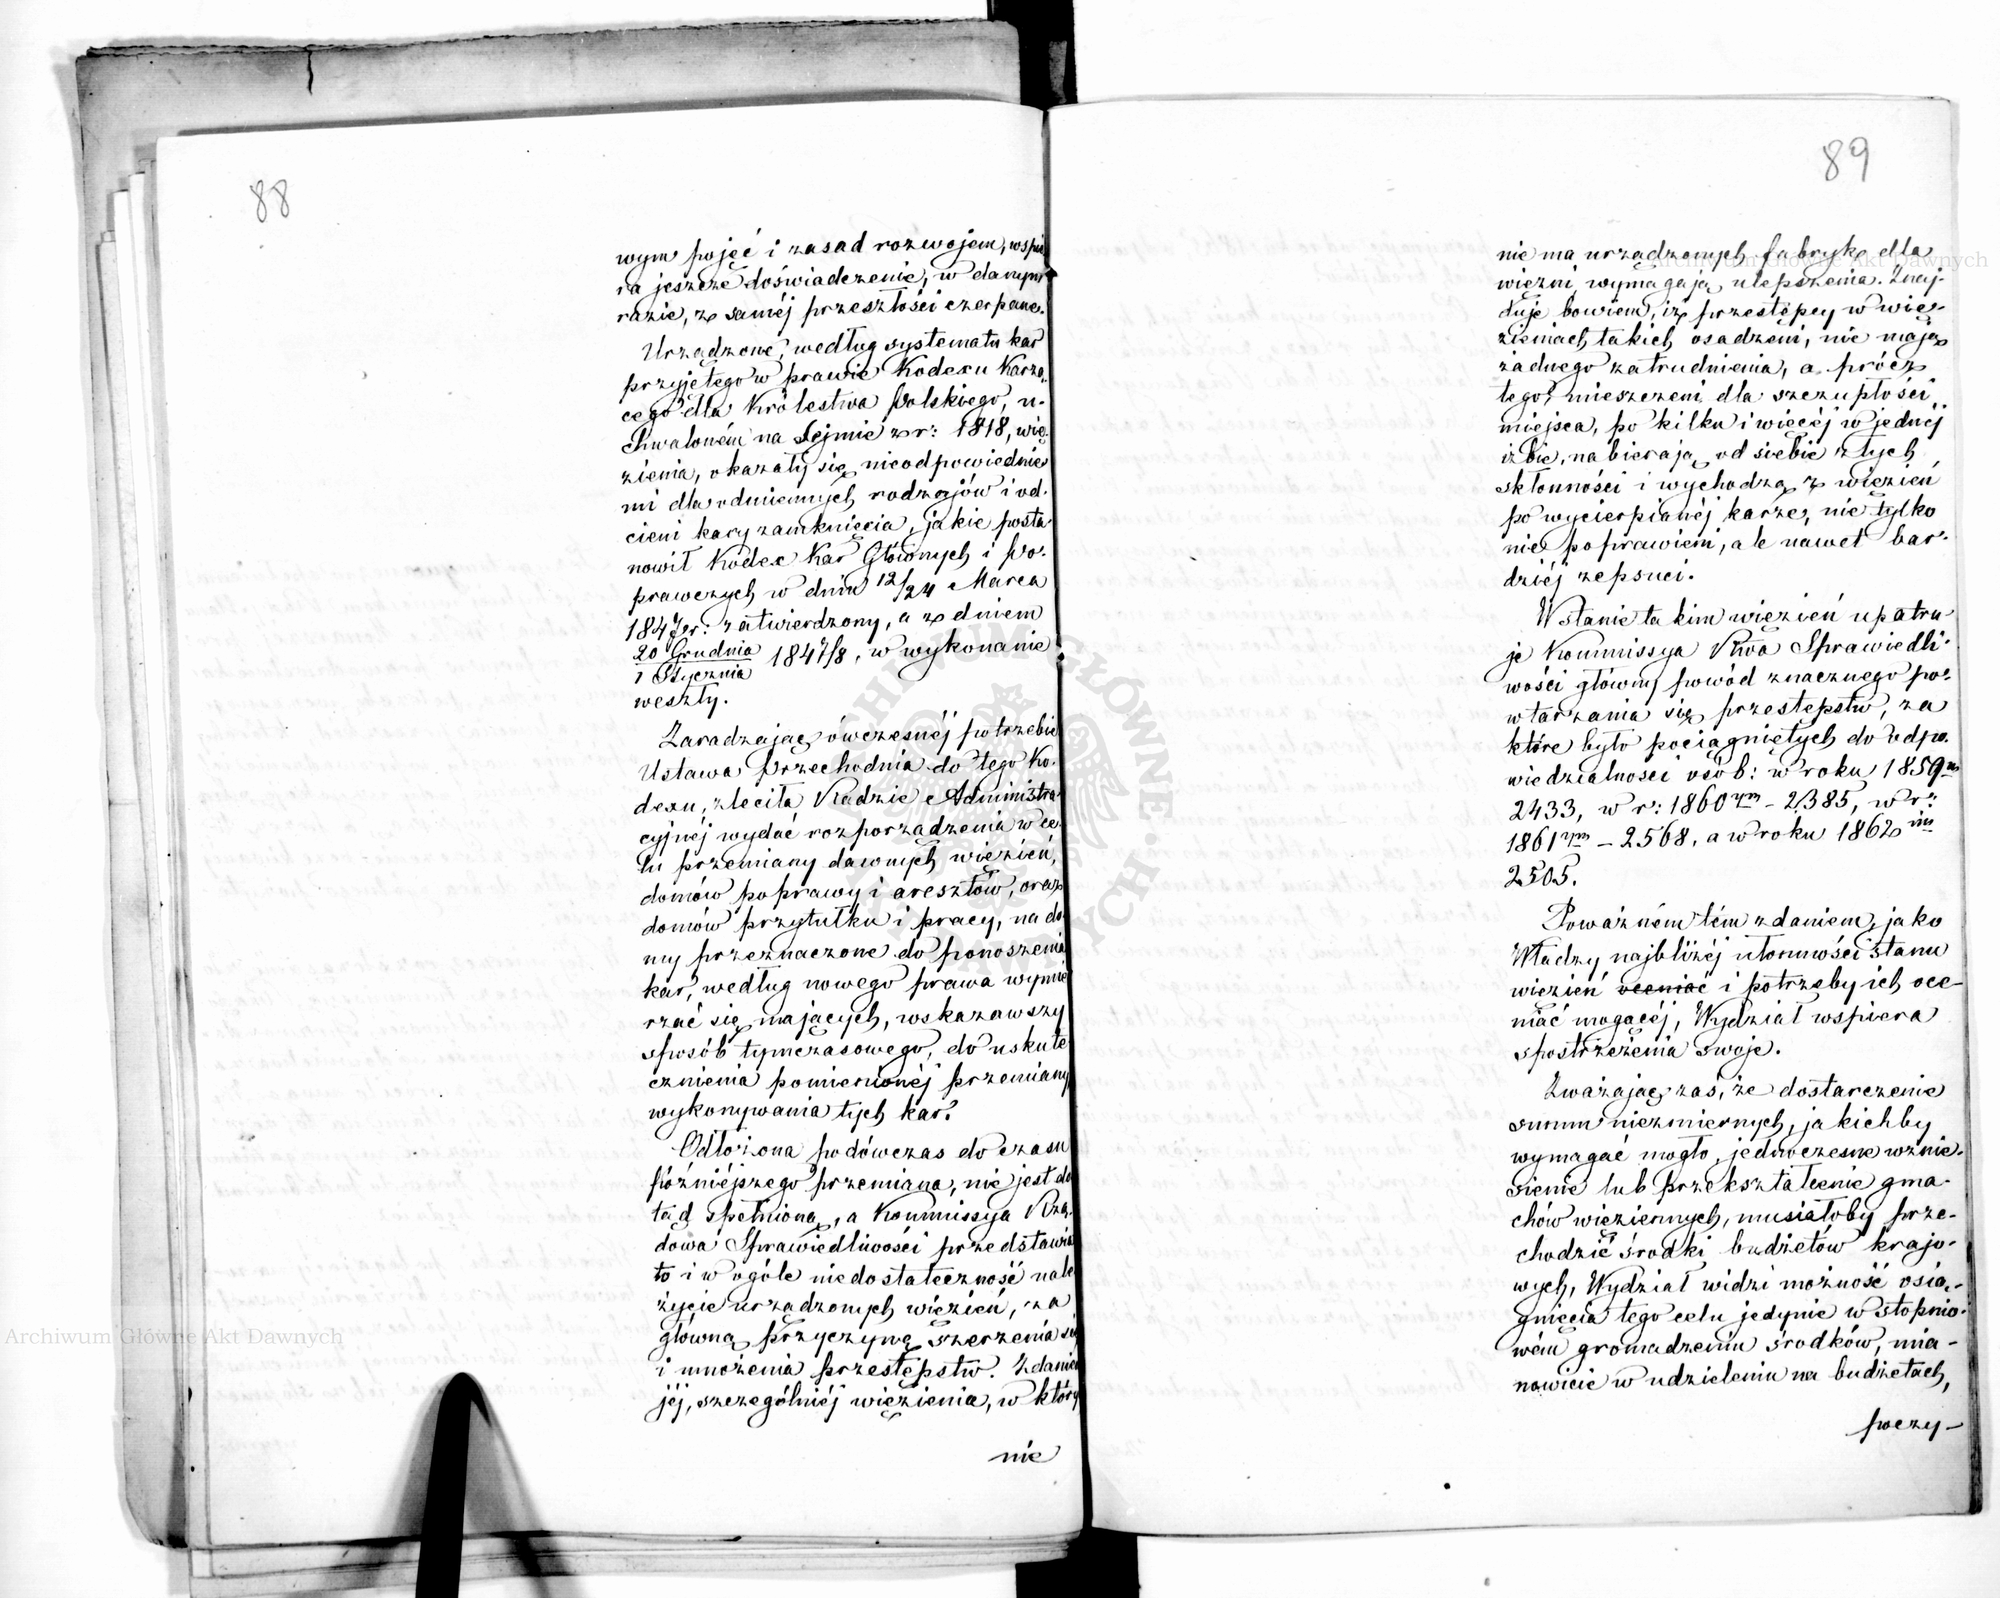 88
wym pojęć i zasad rozwojem, wspie
ra jeszcze doświadczenie, w danym
razie, z saméj przeszłości czerpane.
Urządzone, według systematu kar
przyjętego w prawie Kodexu Karzą-
cego dla Królestwa Polskiego, u-
chwaloném na Sejmie z r: 1818, wię-
zienia, okazały się nieodpowiednie
mi dla odmiennych rodzajów i od-
cieni kary zamknięcia, jakie posta-
nowił Kodex Kar Głównych i Po-
prawczych w dniu 12/24 Marca
1847 r: zatwierdzony, a z dniem
20 Grudnia
1 Stycznia
1847/8, w wykonanie
weszły.
Zaradzając ówczesnéj potrzebie
Ustawa Przechodnia do tego Ko-
dexu, zleciła Radzie Administra-
cyjnéj wydać rozporządzenia w ce-
lu przemiany dawnych więzień,
domów poprawy i aresztów, oraz
domów przytułku i pracy, na do
my przeznaczone do ponoszenia
kar, według nowego prawa wymie
rzać się mających, wskazawszy
sposób tymczasowego, do uskute
cznienia pomienionéj przemiany
wykonywania tych kar.
Odłożona podówczas do czasu
późniéjszego przemiana, nie jest do
tąd spełnioną, a Kommissya Rzą-
dowa Sprawiedliwości przedstawia
to i w ogóle niedostateczność nale
życie urządzonych więzień, za
główną przyczynę szerzenia się
i mnożenia przestępstw. Zdaniem
jéj, szczególniéj więzienia, w który
nie
89
nie ma urządzonych fabryk dla
więźni, wymagają ulepszenia. Znaj-
duje bowiem, iż przestępcy w wię-
zieniach takich osadzeni, nie mają
żadnego zatrudnienia, a prócz
tego, mieszczeni dla szczupłości
miejsca, po kilku i więcéj w jednéj
izbie, nabierają od siebie złych
skłonności i wychodzą z więzień
po wycierpianéj karze, nie tylko
nie poprawieni, ale nawet bar-
dziéj zepsuci.
W stanie takim więzień upatru-
je Kommissya Rwa Sprawiedli-
wości główny powód znacznego po-
wtarzania się przestępstw, za
które było pociągniętych do odpo-
wiedzialnosci osób: w roku 1859m
2433, w r: 1860ym – 2385, w r:
1861ym – 2568, a w roku 1862im
2505.
Poważném tém zdaniem, jako
Władzy najbliżéj ułomności stanu
więzień oceniać i potrzeby ich oce-
niać mogącéj, Wydział wspiera
spostrzeżenia swoje.
Zważając zaś, że dostarczenie
summ niezmiernych, jakichby
wymagać mogło, jednoczesne wznie-
sienie lub przekształcenie gma-
chów więziennych, musiałoby prze-
chodzić środki budżetów krajo-
wych, Wydział widzi możność osią-
gnięcia tego celu jedynie w stopnio-
wém gromadzeniu środków, mia-
nowicie w udzieleniu na budżetach,
poczy-
Archiwum Główne Akt Dawnych
Archiwum Główne Akt Dawnych
ARCHIWUM GŁÓWNE AKT DAWNYCH